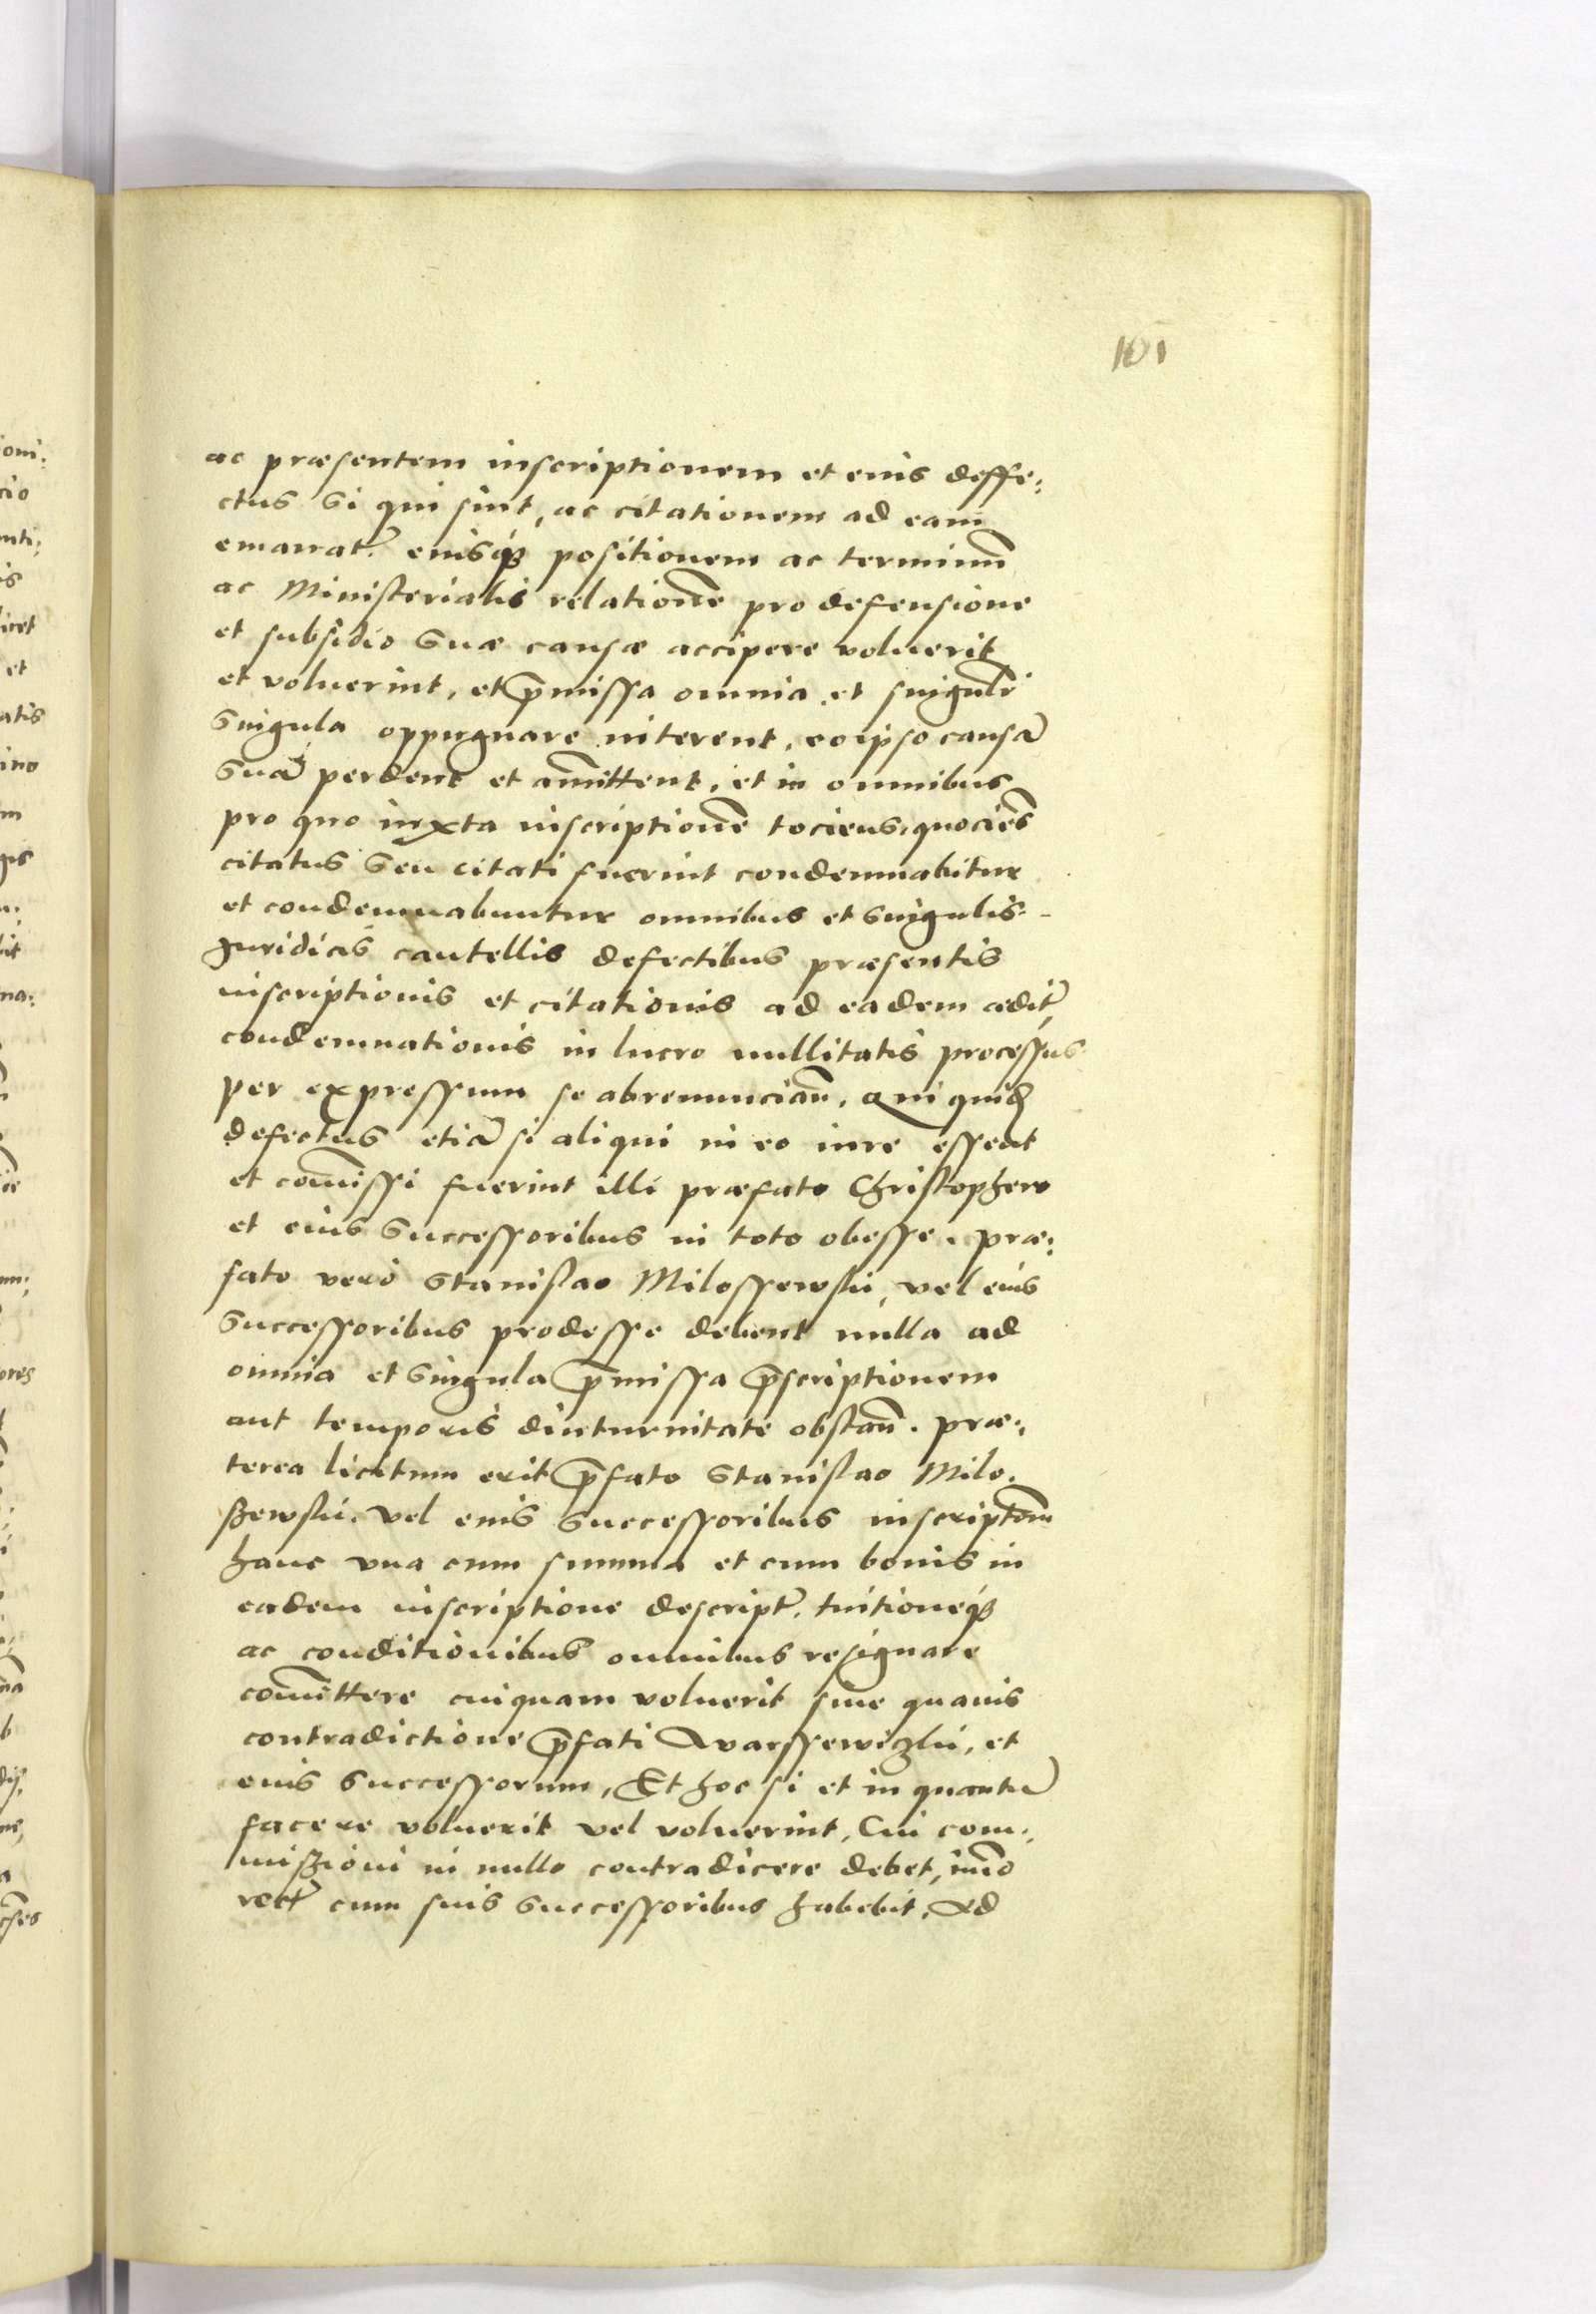 101
ac præsentem inscriptionem et eius deffe:
ctus si qui sint, ac citationem ad eam
emanat̃. eiusq́ꝫ positionem ac terminũ
ac Ministerialis relationẽ pro defensione
et subsidio suæ causæ accipere voluerit
et voluerint, et p̄missa omnia et singulr̃i
singula oppugnare niterent, eo ipso causã
suã perdent et am̃ittent, et in omnibus
pro quo iuxta inscriptionẽ tociens, quociẽs
citatus seu citati fuerint condemnabitur
et condemnabuntur omnibus et singulis -
Juridicis cautellis defectibus præsentis
inscriptionis et citationis ad eadem ædit̃
condemnationis in lucro nullitatis processus
per expressum se abrenunciañ. qui quid̃
defectus etiã si aliqui in eo iure essent
et com̃issi fuerint illi præfato Christophero
et eius successoribus in toto obesse. præ:
fato verò Stanislao Milossewski, vel eius
successoribus prodesse debent nulla ad
omnia et singula p̄missa p̄scriptionem
aut temporis diuturnitate obstañ. præ:
terea licitum erit p̄fato Stanislao Milo.
szewski. vel eius successoribus inscriptõm
hanc vna cum summa et cum bonis in
eadem inscriptione descript̃. tuitioneq́ꝫ
ac conditionibus omnibus resignare
com̃ittere cuiquam voluerit sine quauis
contradictione p̄fati Warssewiczki, et
eius successorum, Et hoc si et in quantũ
facere voluerit vel voluerint, Cui com:
miszioni in nullo contradicere debet, im̃o
rect̃ cum suis successoribus habebit. Ad